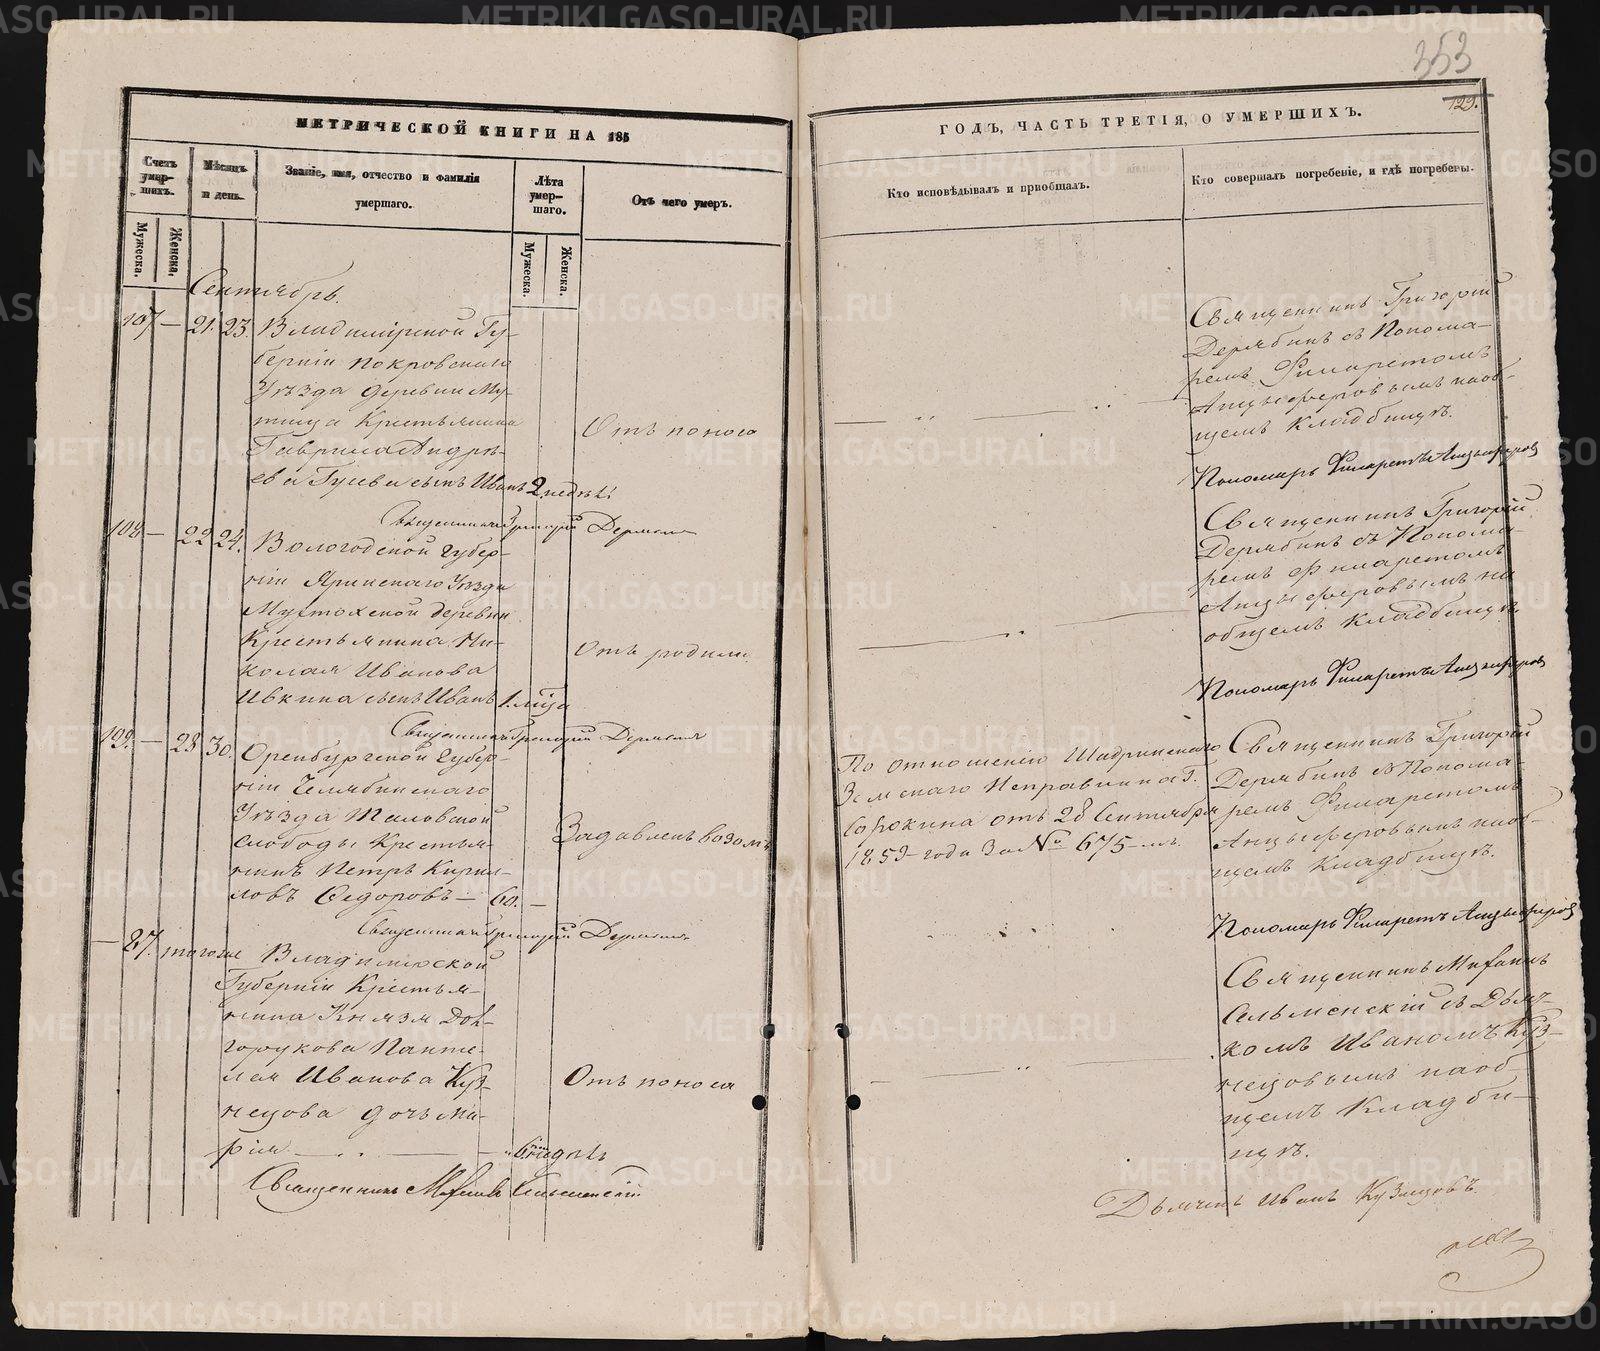 353
129.
МЕТРИЧЕСКОЙ КНИГИ НА 185
ГОДЪ, ЧАСТЬ ТРЕТІЯ, О УМЕРШИХЪ.
Счетъ умер-шихъ.
Мужеска.
Женска.
Мѣсяцъ и день.
Званіе, имя, отчество и фамилія умершаго.
Лѣта умер-шаго.
Мужеска.
Женска.
Отъ чего умеръ.
Кто исповѣдывалъ и приобщалъ.
Кто совершалъ погребеніе, и гдѣ погребены.
Сентябрь.
107 — 21. 23. Владимірской Гу-
берніи Покровскаго
Уѣзда деревни Му-
тища Крестьянина
Гаврила Андрѣ-
ева Гусева сынъ Иванъ 2 недѣли
Отъ поноса
Священникъ Григорій
Дерябинъ съ Понома-
ремъ Филаретомъ
Анцыферовымъ на об-
щемъ кладбищѣ.
Пономарь Филаретъ Анцыферов
Священникъ Григорій Дерябинъ
108 — 22 24. Вологодской губер-
ніи Яринскаго Уѣзда
деревни
Крестьянина Ни-
колая Иванова
Ивкина сынъ Иванъ 1. мѣца
Отъ родими
Священникъ Григорій
Дерябинъ съ Понома-
ремъ Филаретомъ
Анцыферовымъ на
общемъ кладбищѣ.
Пономарь Филаретъ Анцыферов
Священникъ Григорій Дерябинъ
109. — 28 30. Оренбургской губер-
ніи Челябинскаго
Уѣзда Таловской
слободы Крестья-
нинъ Петръ Кирил-
ловъ Ѳедоровъ — 60. —
Задавленъ возомъ
По отношенію Шадринскаго
Земскаго Исправника Г.
Сорокина отъ 28 Сентября
1859 года за № 675-мъ.
Священникъ Григорій
Дерябинъ съ Понома-
ремъ Филаретомъ
Анцыферовымъ на об-
щемъ кладбищѣ.
Пономарь Филаретъ Анцыферов
Священникъ Григорій Дерябинъ
— 27. тогоже Владимірской
Губерніи Крестья-
нина Князя Дол-
горукова Панте-
лея Иванова Куз-
нецова дочь Ма-
рія — 6. недѣль
Отъ поноса
Священникъ Мефодій
Сельменскій съ Дьяч-
комъ Иваномъ Куз-
нецовымъ на об-
щемъ кладби-
щѣ.
Священникъ Сельменскій
Дьячекъ Иванъ Кузнецовъ.